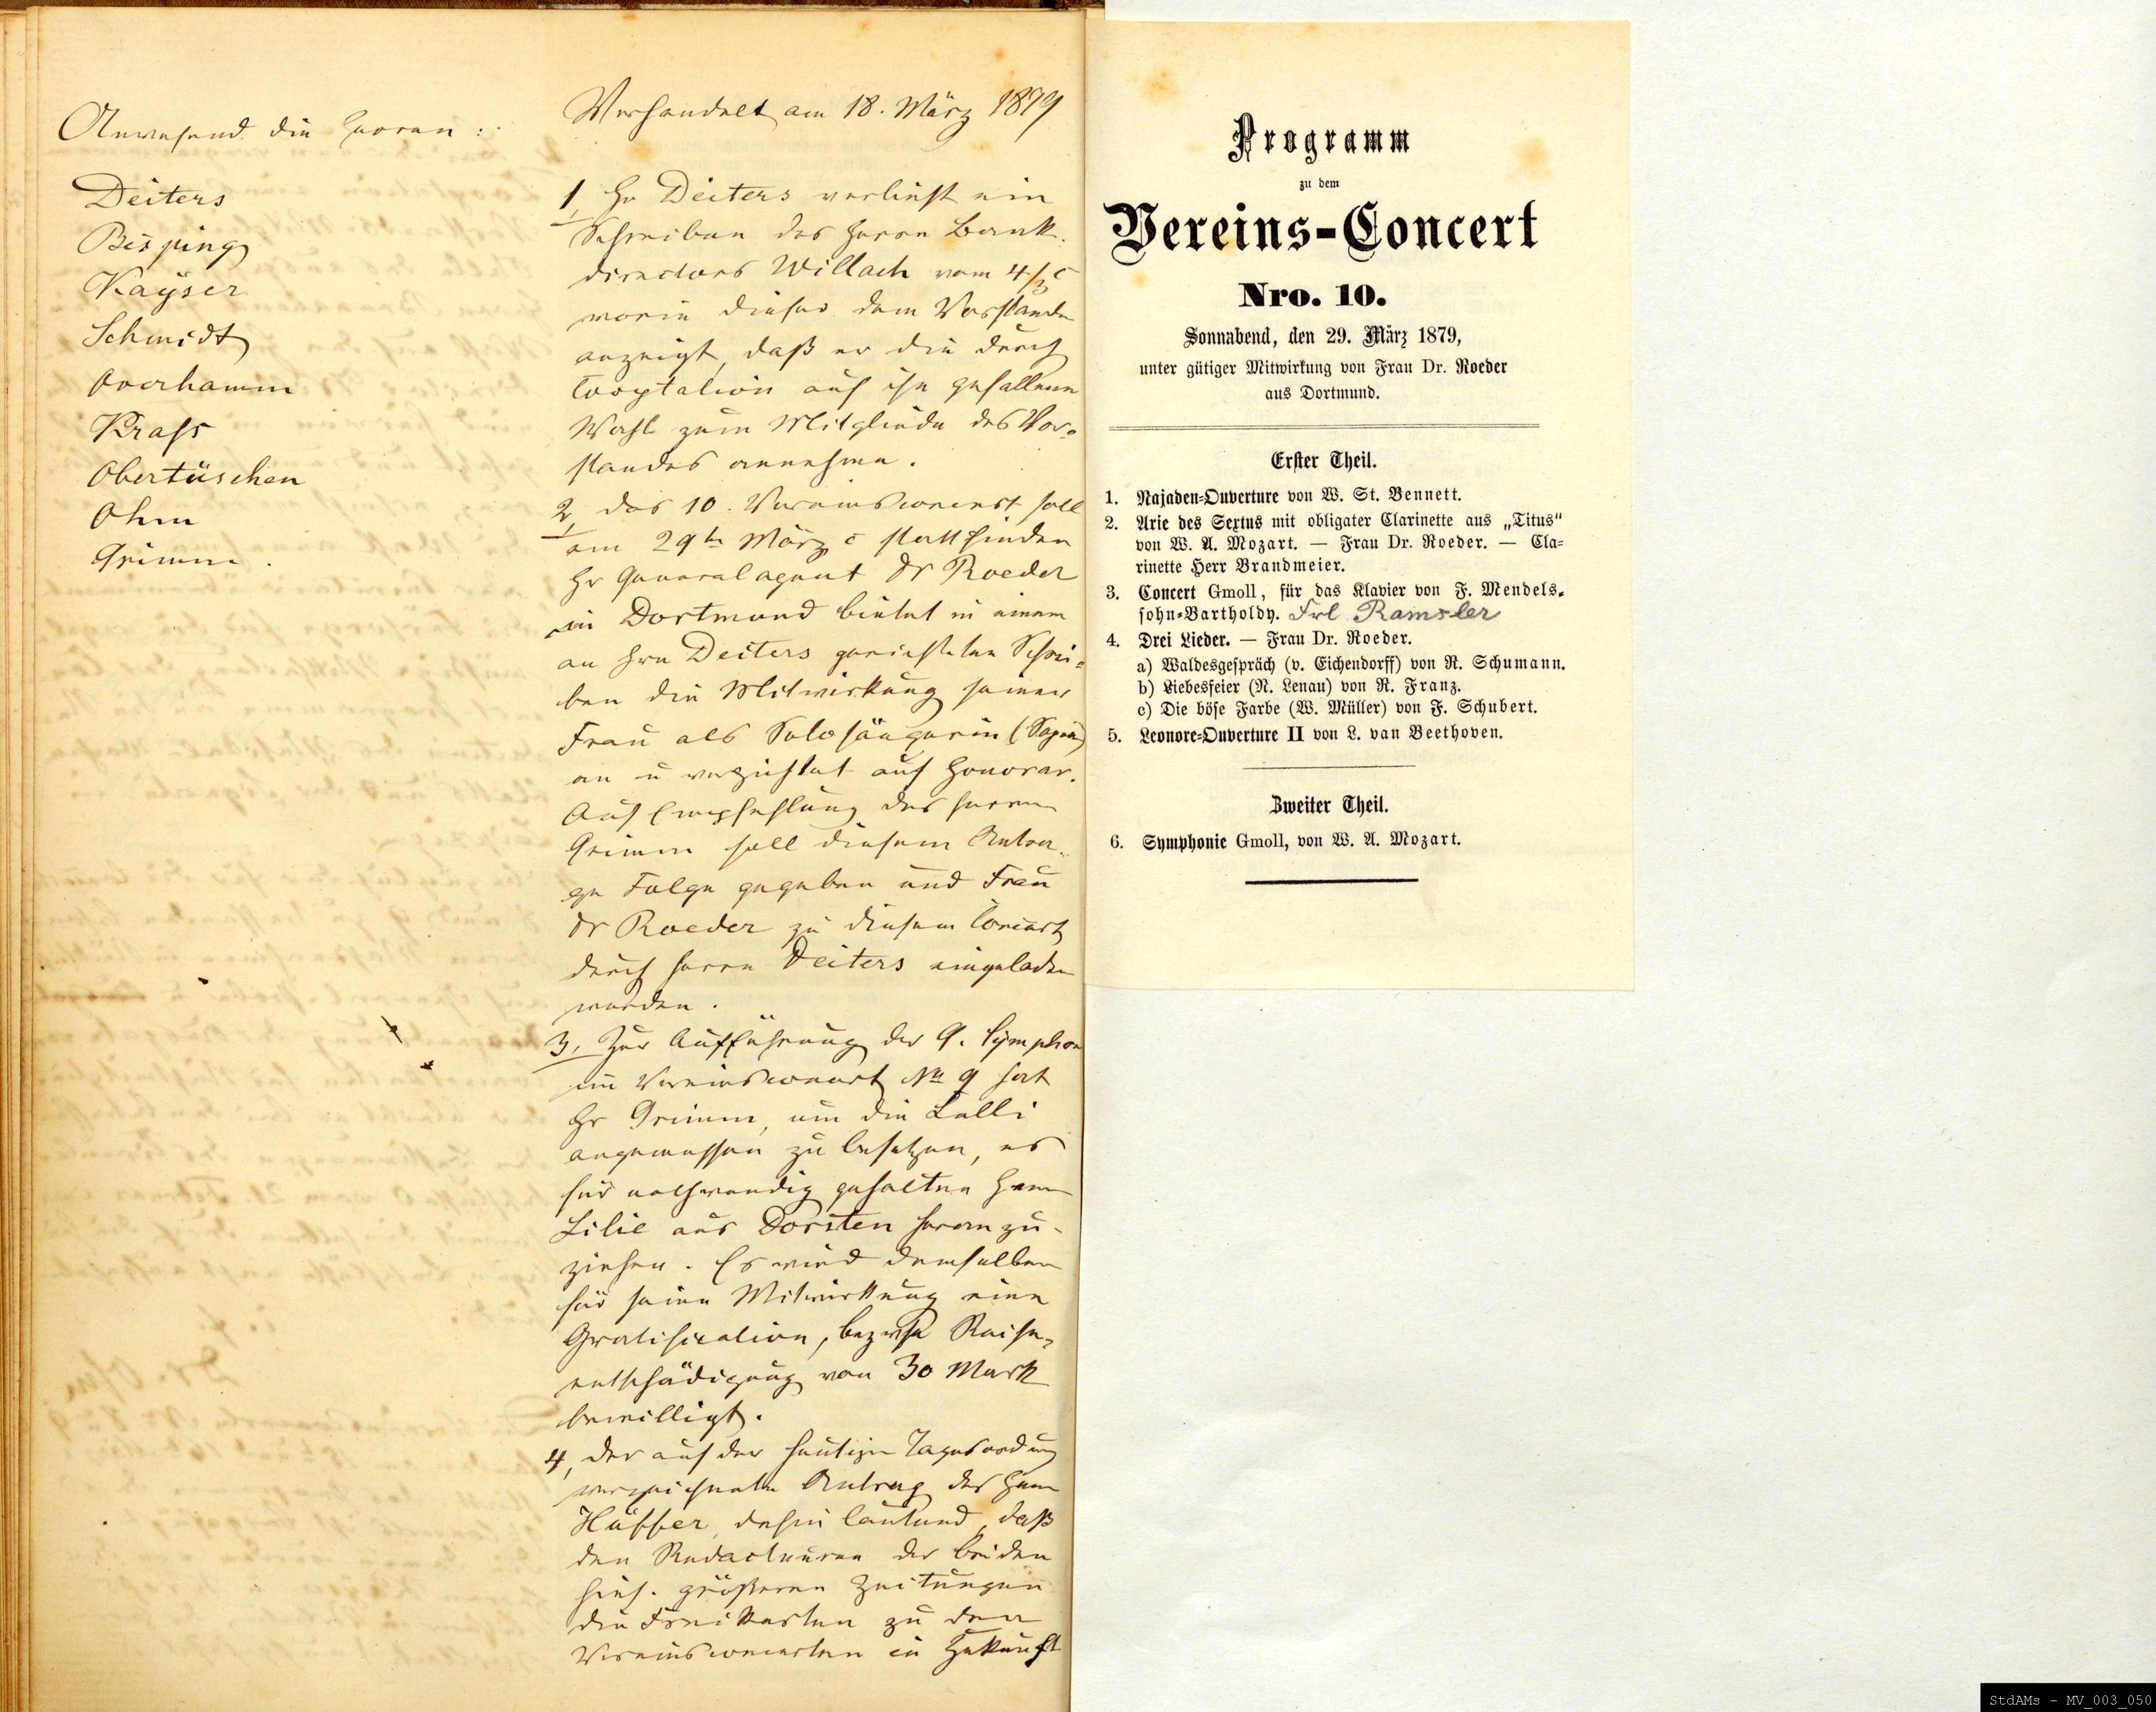 Anwesend die Herren:
Deiters
Bisping
Kayser
Schmidt
Overhamm
Krass
Obertüschen
Ohm
Grimm.
Verhandelt am 18. März 1879
1, Hr Deiters verliest ein
Schreiben des Herrn Bank-
directors Willach vom 4/3 c
worin dieser dem Vorstande
anzeigt, daß er die durch
Cooptation auf ihn gefallene
Wahl zum Mitgliede des Vor-
standes annehme.
2, Das 10. Vereinsconcert soll
am 29ten März c stattfinden
Hr Generalagent Dr Roeder
in Dortmund bietet in einem
an Hrn Deiters gerichteten Schrei-
ben die Mitwirkung seiner
Frau als Solosängerin (Sopran)
an u verzichtet auf Honorar.
Auf Empfehlung des Herrn
Grimm soll diesem Antra-
ge Folge gegeben und Frau
Dr Roeder zu diesem Concert
durch Herrn Deiters eingeladen
werden.
3, Zur Aufführung der 9. Symphon
im Vereinsconcert No 9 hat
Hr Grimm, um die Celli
angemessen zu besetzen, es
für nothwendig gehalten Herrn
Lilie aus Dorsten heranzu-
ziehen. Es wird demselben
für seine Mitwirkung eine
Gratification, bezw Reise-
entschädigung von 30 Mark
bewilligt.
4, Der auf der heutigen Tagesordnung
verzeichnete Antrag des Herrn
Hüffer, dahin lautend, daß
den Redacteuren der beiden
hies. größeren Zeitungen
die Freikarten zu den
Vereinsconcerten in Zukunft
Programm
zu dem
Vereins-Concert
Nro. 10.
Sonnabend, den 29. März 1879,
unter gütiger Mitwirkung von Frau Dr. Roeder
aus Dortmund.
Erster Theil.
1. Najaden-Ouverture von W. St. Bennett.
2. Arie des Sextus mit obligater Clarinette aus „Titus“
von W. A. Mozart. — Frau Dr. Roeder. — Cla-
rinette Herr Brandmeier.
3. Concert Gmoll, für das Klavier von F. Mendels-
sohn-Bartholdy. Frl Ramsler
4. Drei Lieder. — Frau Dr. Roeder.
a) Waldesgespräch (v. Eichendorff) von R. Schumann.
b) Liebesfeier (N. Lenau) von R. Franz.
c) Die böse Farbe (W. Müller) von F. Schubert.
5. Leonore-Ouverture II von L. van Beethoven.
Zweiter Theil.
6. Symphonie Gmoll, von W. A. Mozart.
StdAMs - MV_003_050